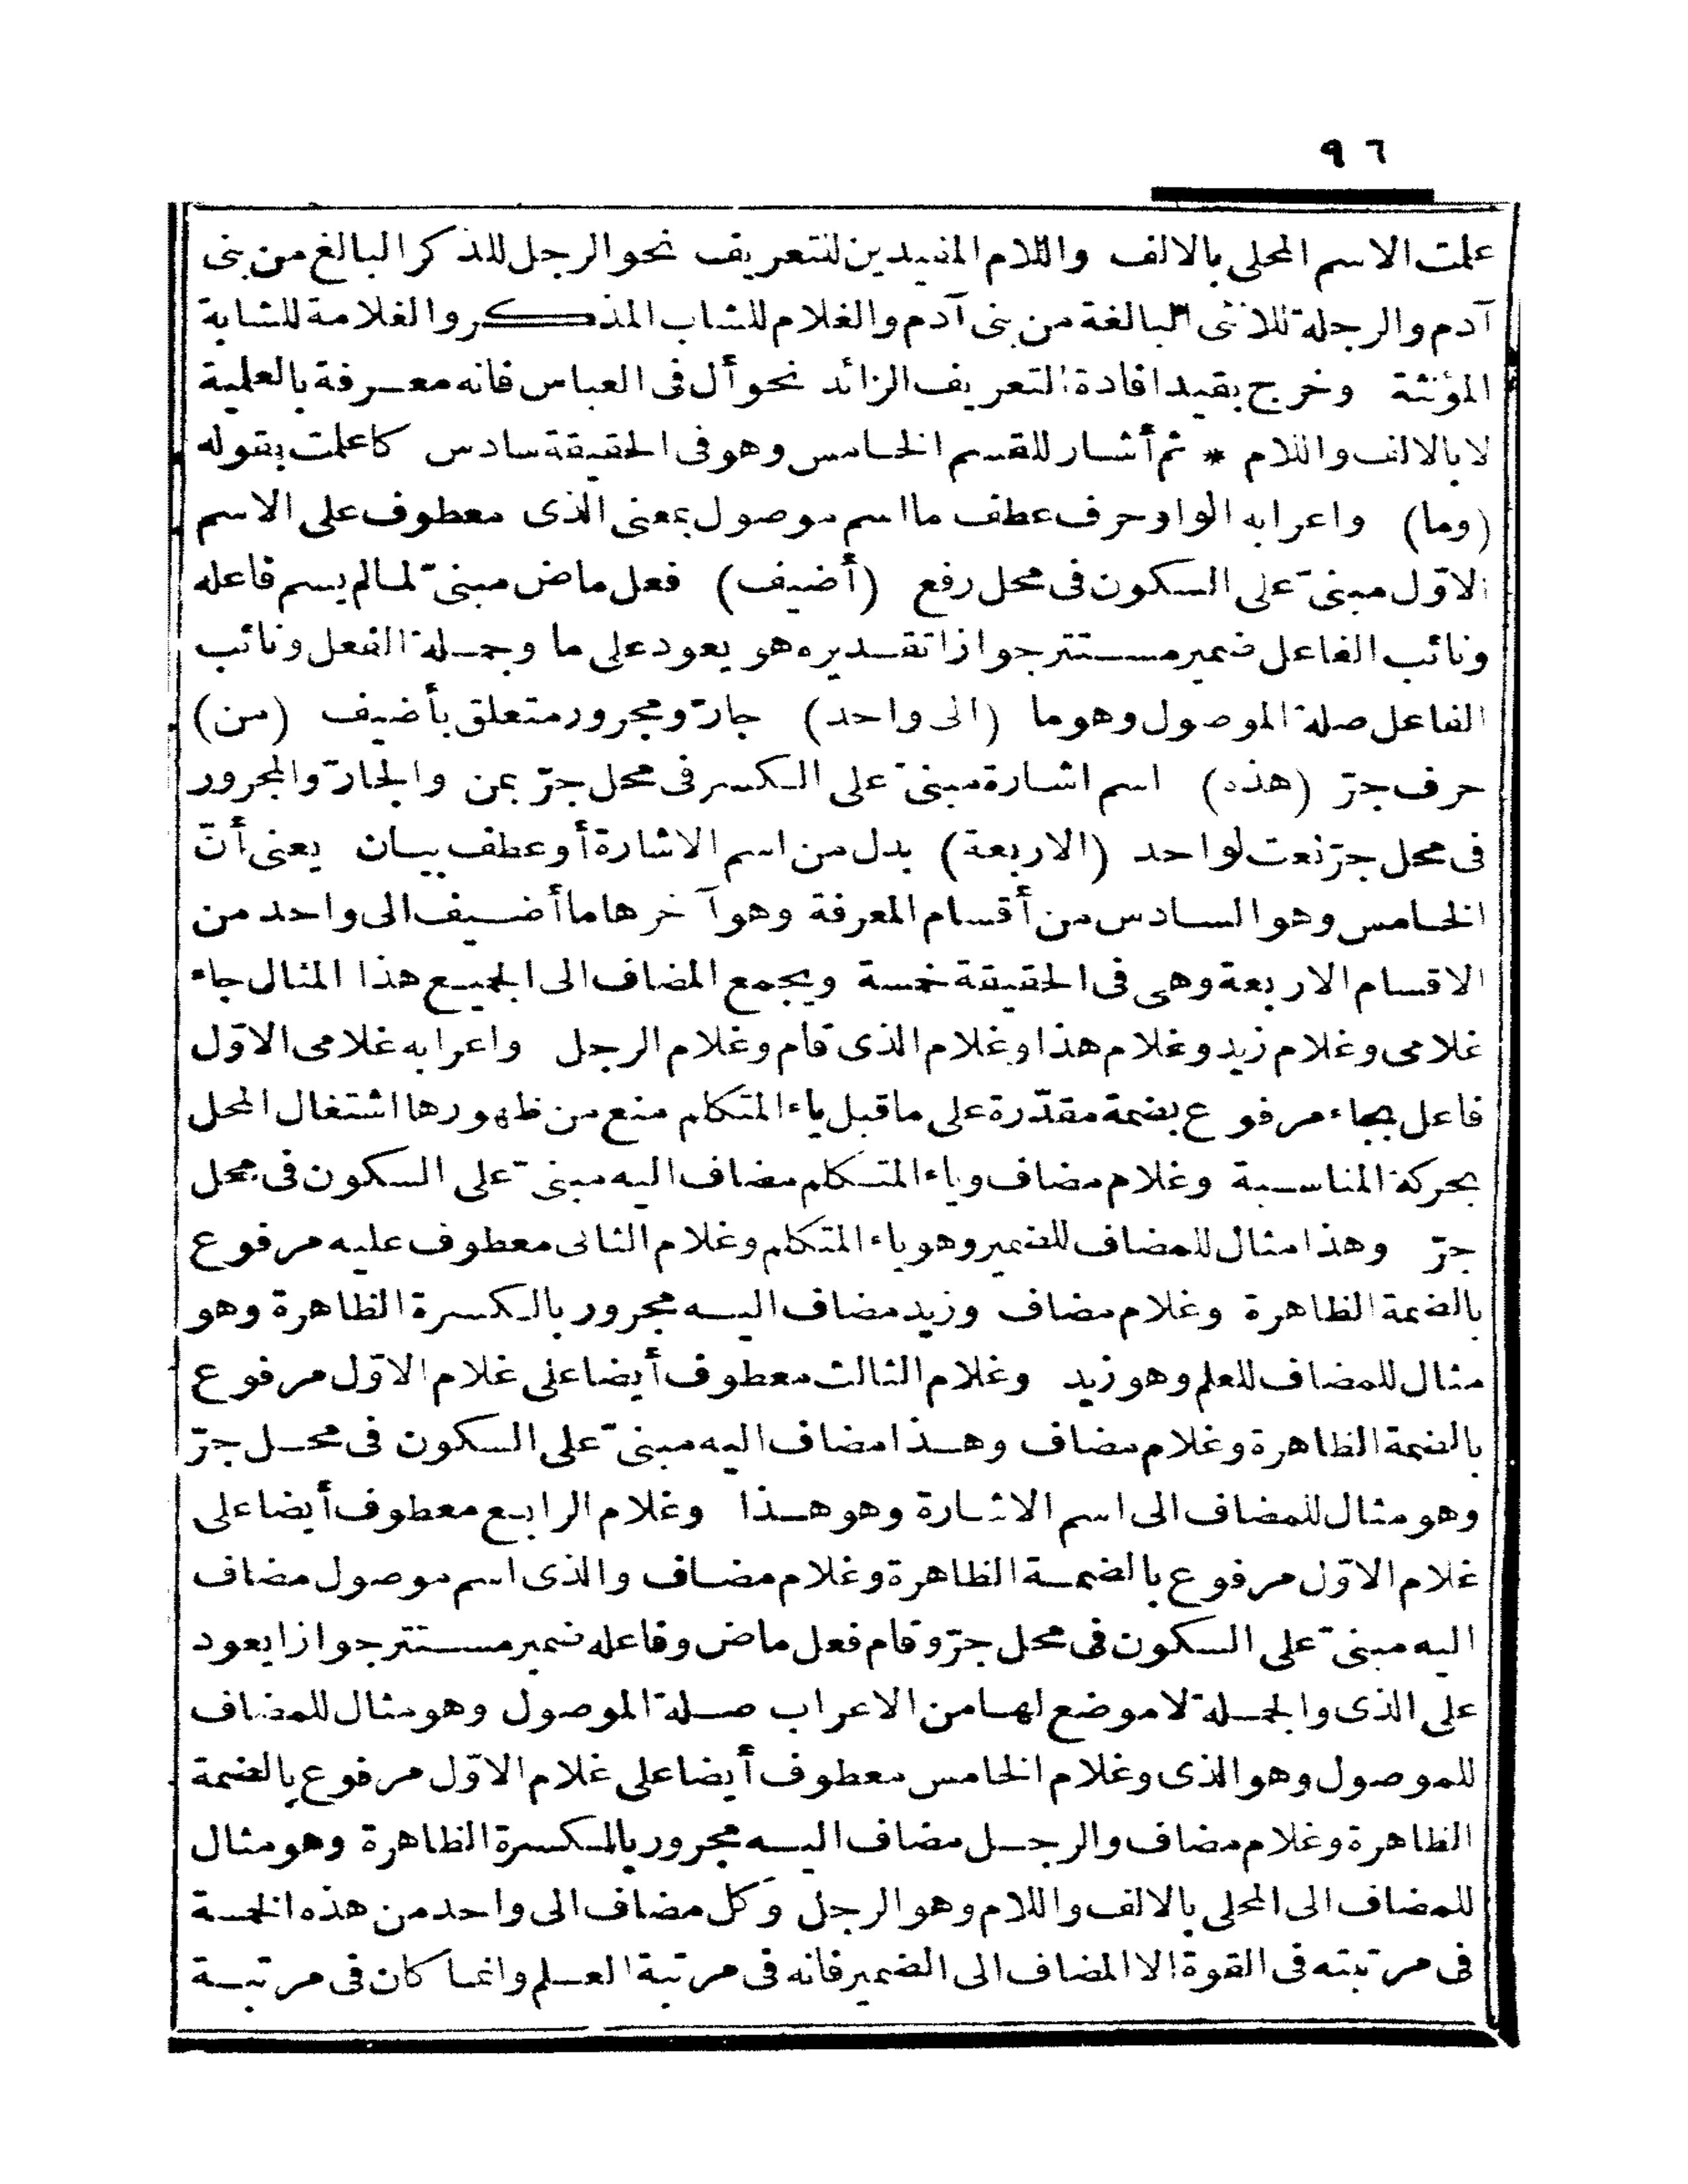 ٩٦
علمت الاسم المحلى بالالف واللام المفيدين للتعريف نحو الرجل للذكر البالغ من بنى
آدم والرجلة للانثى البالغة من بنى آدم والغلام للشاب المذكر والغلامة للشابة
المؤنثة وخرج بقيد افادة التعريف الزائد نحو أل فى العباس فانه معرفة بالعلمية
لا بالالف واللام * ثم أشار للقسم الخامس وهو فى الحقيقة سادس كما علمت بقوله
(وما) واعرابه الواو حرف عطف ما اسم موصول بمعنى الذى معطوف على الاسم
الاوّل مبنىّ على السكون فى محل رفع (أضيف) فعل ماض مبنىّ لما لم يسم فاعله
ونائب الفاعل ضمير مستتر جوازا تقديره هو يعود على ما وجملة الفعل ونائب
الفاعل صلة الموصول وهو ما (الى واحد) جارّ ومجرور متعلق بأضيف (من)
حرف جرّ (هذه) اسم اشارة مبنىّ على الكسر فى محل جرّ بمن والجارّ والمجرور
فى محل جرّ نعت لواحد (الاربعة) بدل من اسم الاشارة أو عطف بيان يعنى أنّ
الخامس وهو السادس من أقسام المعرفة وهو آخرها ما أضيف الى واحد من
الاقسام الاربعة وهى فى الحقيقة خمسة ويجمع المضاف الى الجميع هذا المثال جاء
غلامى وغلام زيد وغلام هذا وغلام الذى قام وغلام الرجل واعرابه غلامى الاوّل
فاعل بجاء مرفوع بضمة مقدّرة على ما قبل ياء المتكلم منع من ظهورها اشتغال المحل
بحركة المناسبة وغلام مضاف وياء المتكلم مضاف اليه مبنىّ على السكون فى محل
جرّ وهذا مثال للمضاف للضمير وهو ياء المتكلم وغلام الثانى معطوف عليه مرفوع
بالضمة الظاهرة وغلام مضاف وزيد مضاف اليه مجرور بالكسرة الظاهرة وهو
مثال للمضاف للعلم وهو زيد وغلام الثالث معطوف أيضا على غلام الاوّل مرفوع
بالضمة الظاهرة وغلام مضاف وهذا مضاف اليه مبنىّ على السكون فى محل جرّ
وهو مثال للمضاف الى اسم الاشارة وهو هذا وغلام الرابع معطوف أيضا على
غلام الاوّل مرفوع بالضمة الظاهرة وغلام مضاف والذى اسم موصول مضاف
اليه مبنىّ على السكون فى محل جرّ وقام فعل ماض وفاعله ضمير مستتر جوازا يعود
على الذى والجملة لا موضع لها من الاعراب صلة الموصول وهو مثال للمضاف
للموصول وهو الذى وغلام الخامس معطوف أيضا على غلام الاوّل مرفوع بالضمة
الظاهرة وغلام مضاف والرجل مضاف اليه مجرور بالكسرة الظاهرة وهو مثال
للمضاف الى المحلى بالالف واللام وهو الرجل وكل مضاف الى واحد من هذه الخمسة
فى مرتبته فى القوة الا المضاف الى الضمير فانه فى مرتبة العلم وانما كان فى مرتبة